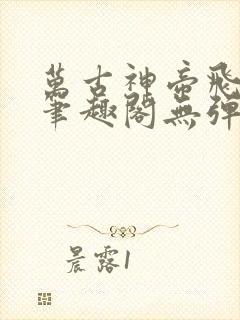 萬古神帝飛
筆趣閣無彈
晨露1